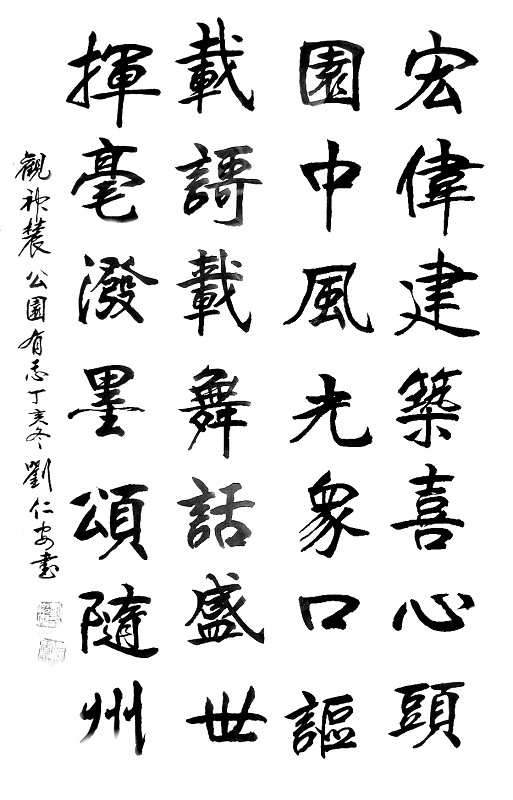 宏偉建築喜心頭
園中風光衆口謳
載謌載舞話盛世
揮毫潑墨頌隨州
觀神農公園有感丁亥冬劉仁安書